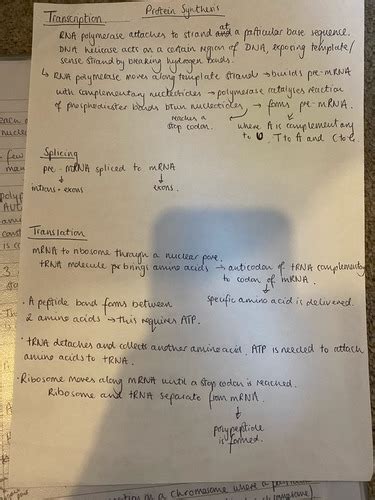 Protein Synthesis
Transcription
RNA polymerase attaches to strand at a particular base sequence.
DNA helicase acts on a certain region of DNA, exposing template/
sense strand by breaking hydrogen bonds.
↳ RNA polymerase moves along template strand → builds pre-mRNA
with complementary nucleotides → polymerase catalyses reaction
of phosphodiester bonds btwn nucleotides → forms pre-mRNA.
reaches a
stop codon.
where A is complementary
to U, T to A and C to G.
Splicing
pre-mRNA spliced to mRNA
introns + exons
exons.
Translation
mRNA to ribosome through a nuclear pore.
tRNA molecule brings amino acids → anticodon of tRNA complementary
to codon of mRNA.
specific amino acid is delivered.
· A peptide bond forms between
2 amino acids → this requires ATP.
· tRNA detaches and collects another amino acid. ATP is needed to attach
amino acids to tRNA.
· Ribosome moves along mRNA until a stop codon is reached.
Ribosome and tRNA separate from mRNA.
polypeptide
is formed.
on a chromosome where a